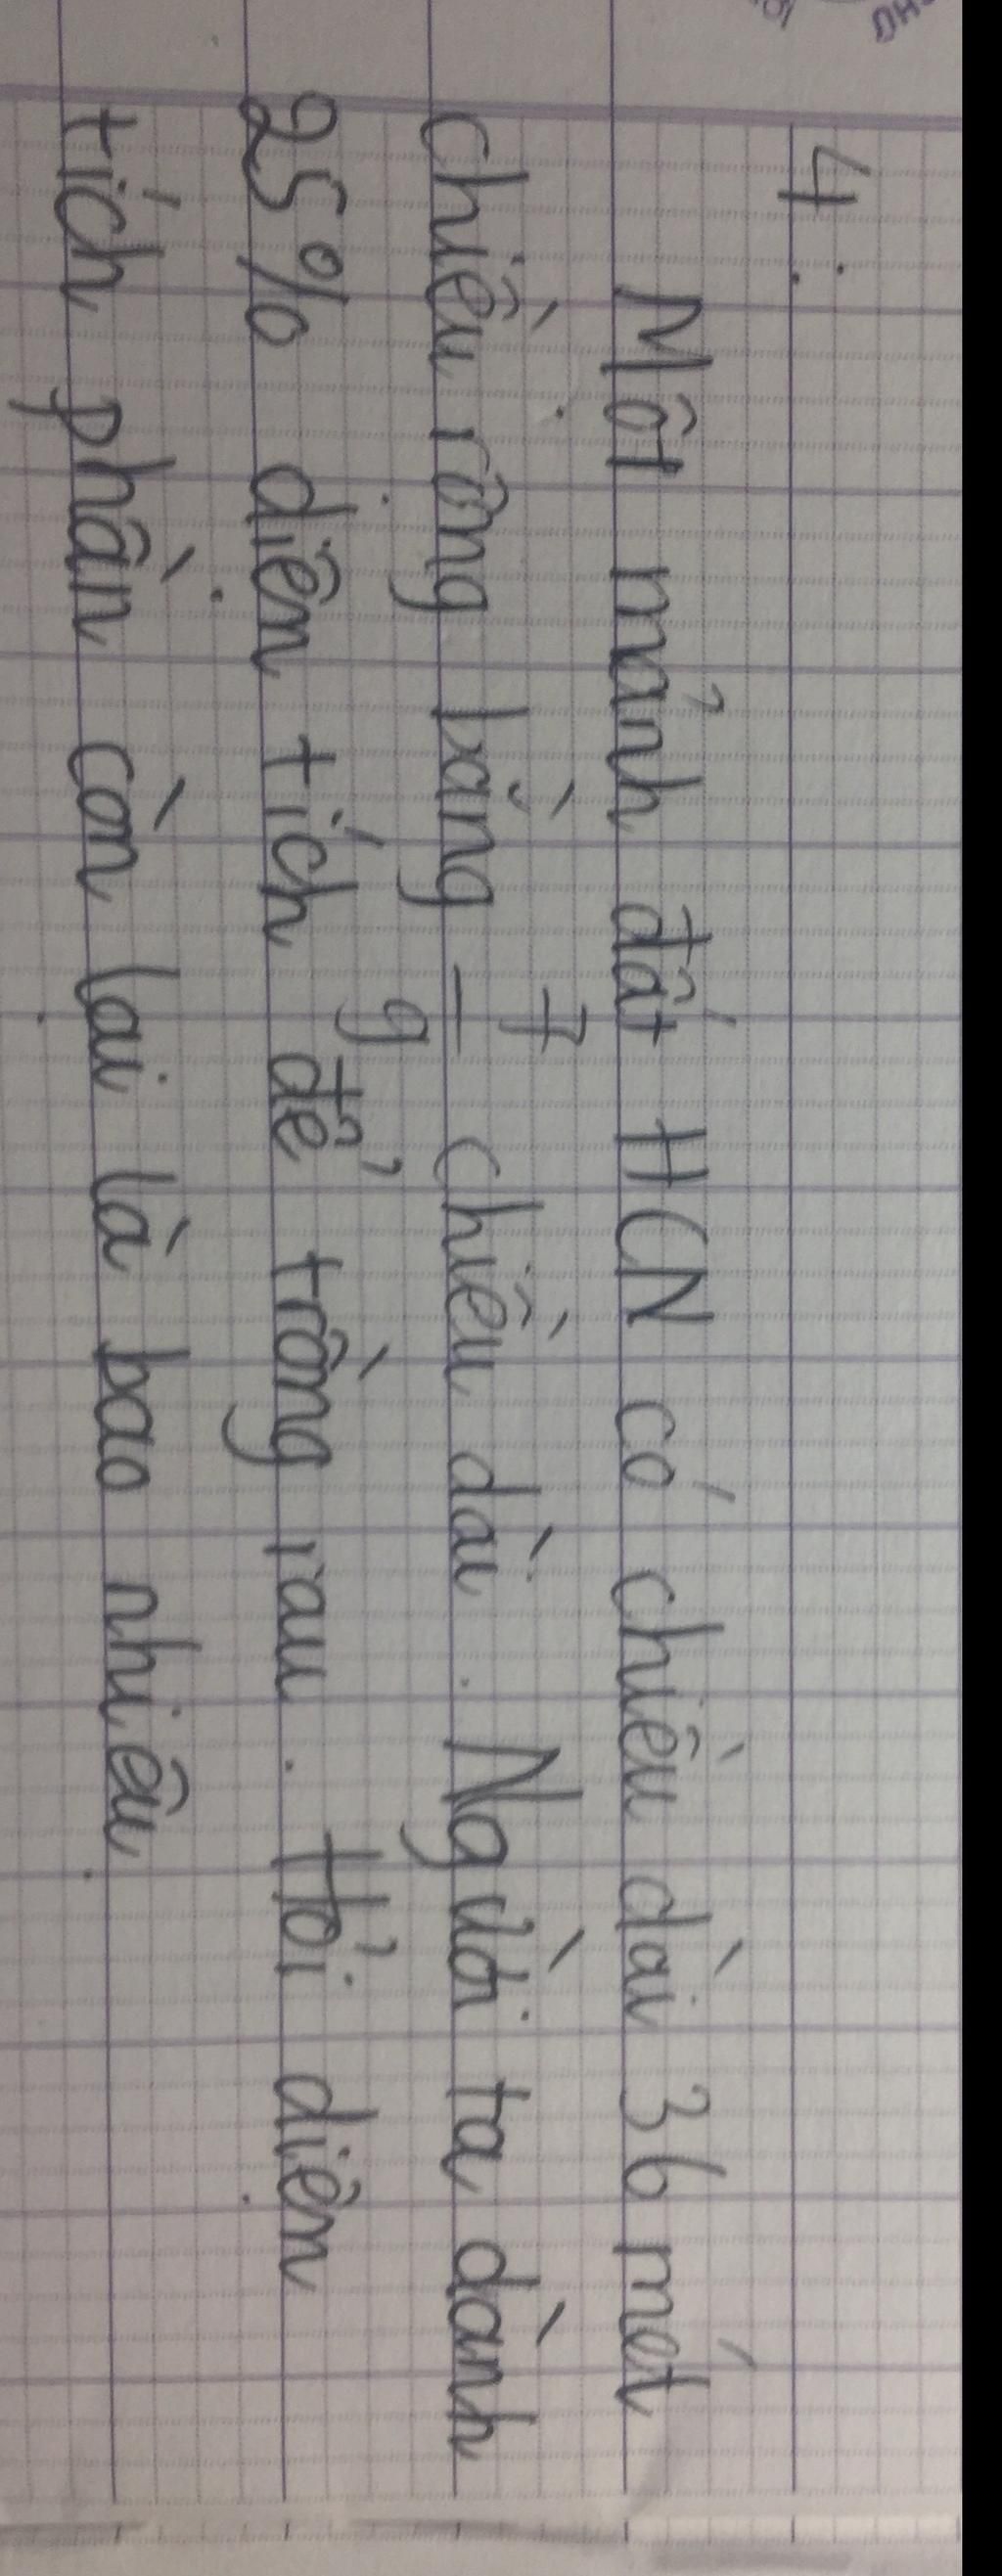 4:
Một mảnh đất HCN có chiều dài 36 mét
chiều rộng bằng 7/9 chiều dài. Người ta dành
25% diện tích để trồng rau. Hỏi diện
tích phần còn lại là bao nhiêu